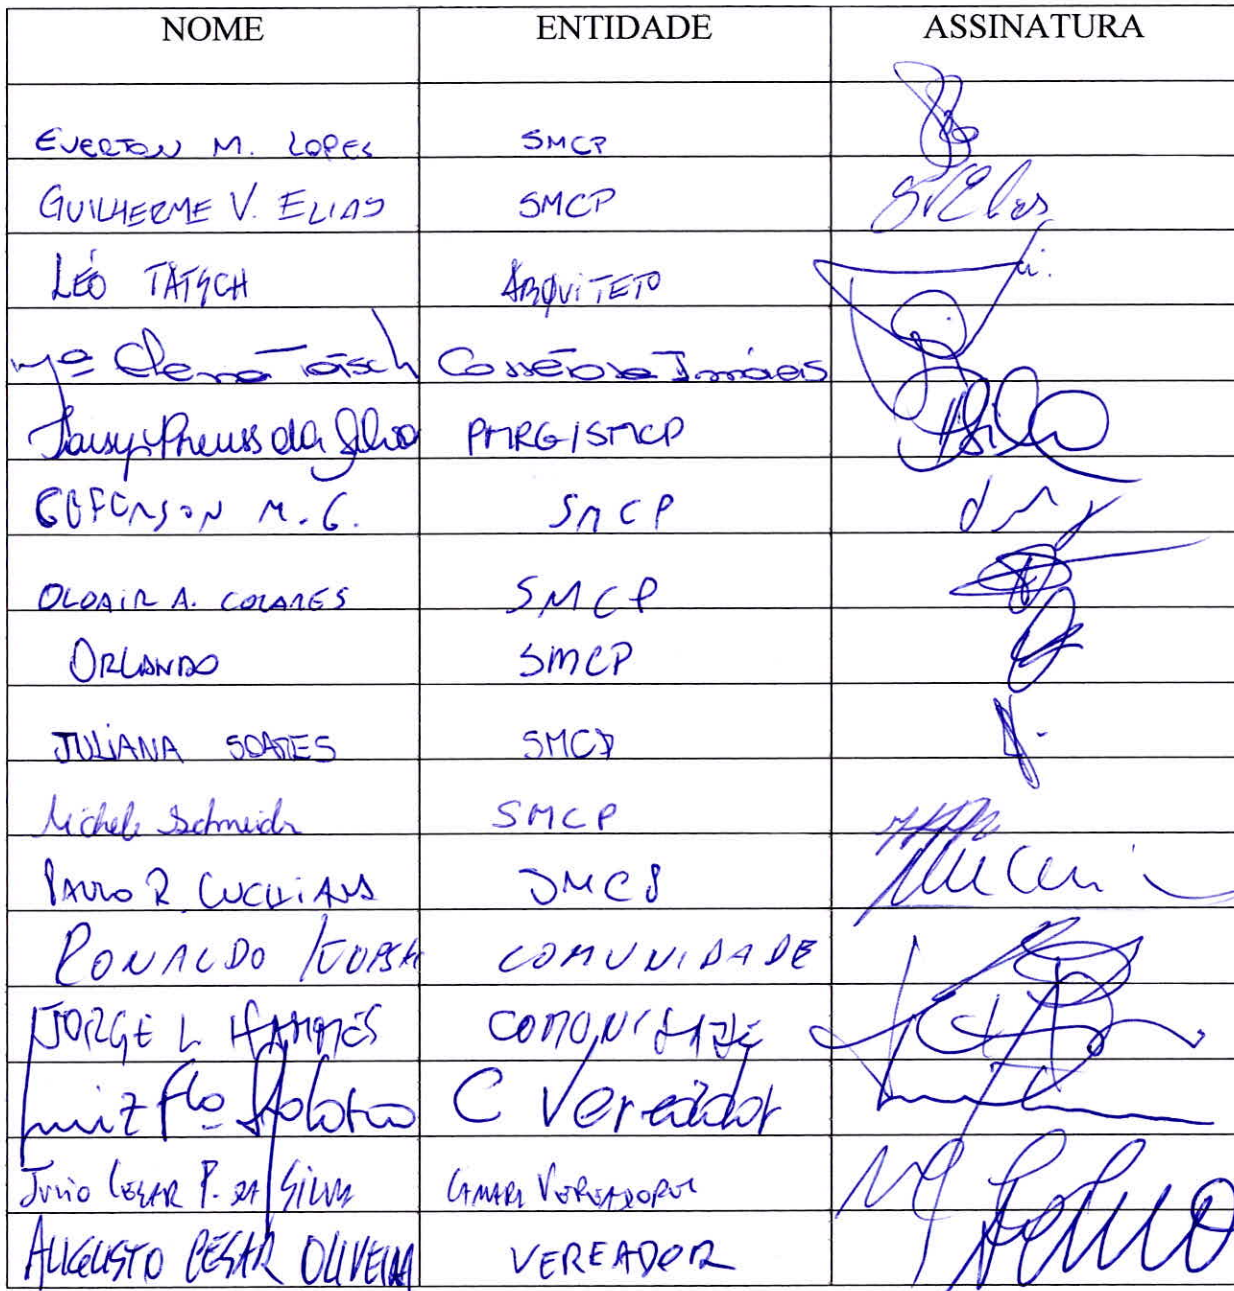 NOME ENTIDADE ASSINATURA
EVERTON M. LOPES SMCP
GUILHERME V. ELIAS SMCP
LÉO TATSCH ARQUITETO
Mª Elena Tatsch
PMRG/SMCP
M. G. SMCP
OLDAIR A. COLARES SMCP
ORLANDO SMCP
JULIANA SOARES SMCP
Michele Schneider SMCP
PAULO R. CUCHIARA SMCP
RONALDO COMUNIDADE
JORGE L. HAMMES COMONIDADE
Luiz Fco C Vereador
Julio Cesar P. da Silva Camara Vereadores
AUGUSTO CESAR OLIVEIRA VEREADOR